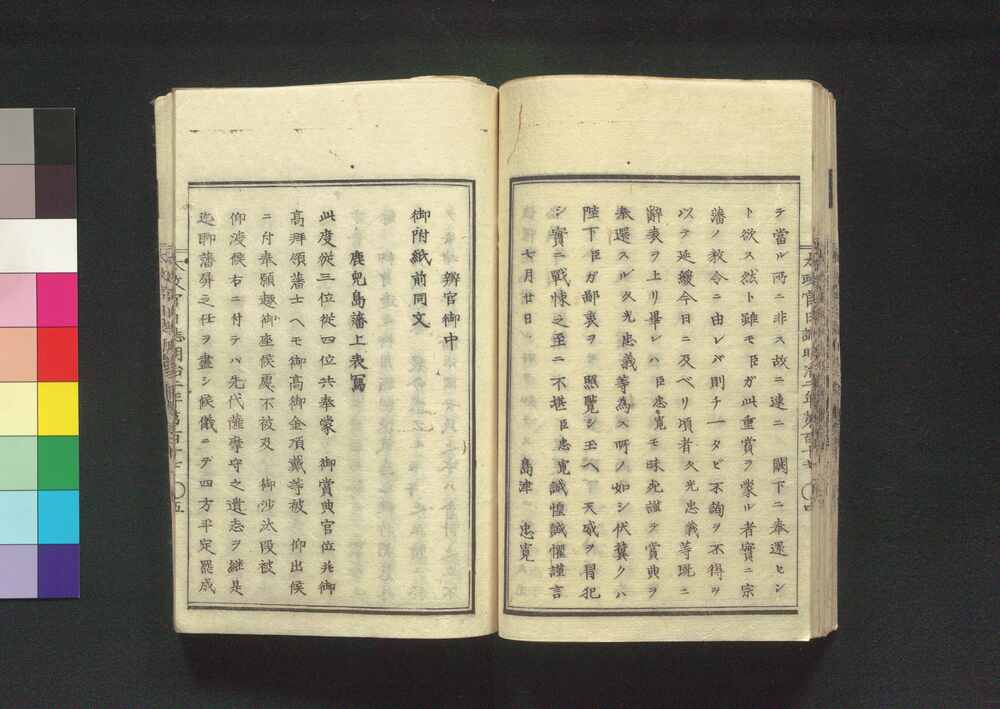 テ當ル所ニ非ス故ニ速ニ　闕下ニ奉還セン
ト欲ス然ト雖モ臣ガ此重賞ヲ蒙ル者實ニ宗
藩ノ教令ニ由レバ則チ一タビ不詢ヲ不得ツ
以テ遲緩今日ニ及ベリ頃者久光忠義等既ニ
辭表ヲ上リ畢レハ臣忠寛モ昧死謹テ賞典ヲ
奉還スル久光忠義等為ス所ノ如シ伏冀クハ
陛下臣ガ鄙衷ヲ　照覽シ玉ヘ　天威ヲ冒犯
シ實ニ戰慄之至ニ不堪臣忠寛誠惶誠懼謹言
七月廿日　島津　忠寛
辨官御中
御附紙前同文
鹿兒島藩上表寫
此度從三位從四位共奉蒙　御賞典官位共御
高拜領藩士ヘモ御高御金頂戴等被　仰出候
ニ付奉願趣御座候處不被及　御沙汰段被
仰渡候右ニ付テハ先代薩摩守之遺志ヲ継是
迄聊藩屏之任ヲ盡シ候儀ニテ四方平定罷成
太政官日誌明治二年第百十七　〇四
太政官日誌明治二年第百十七　〇五